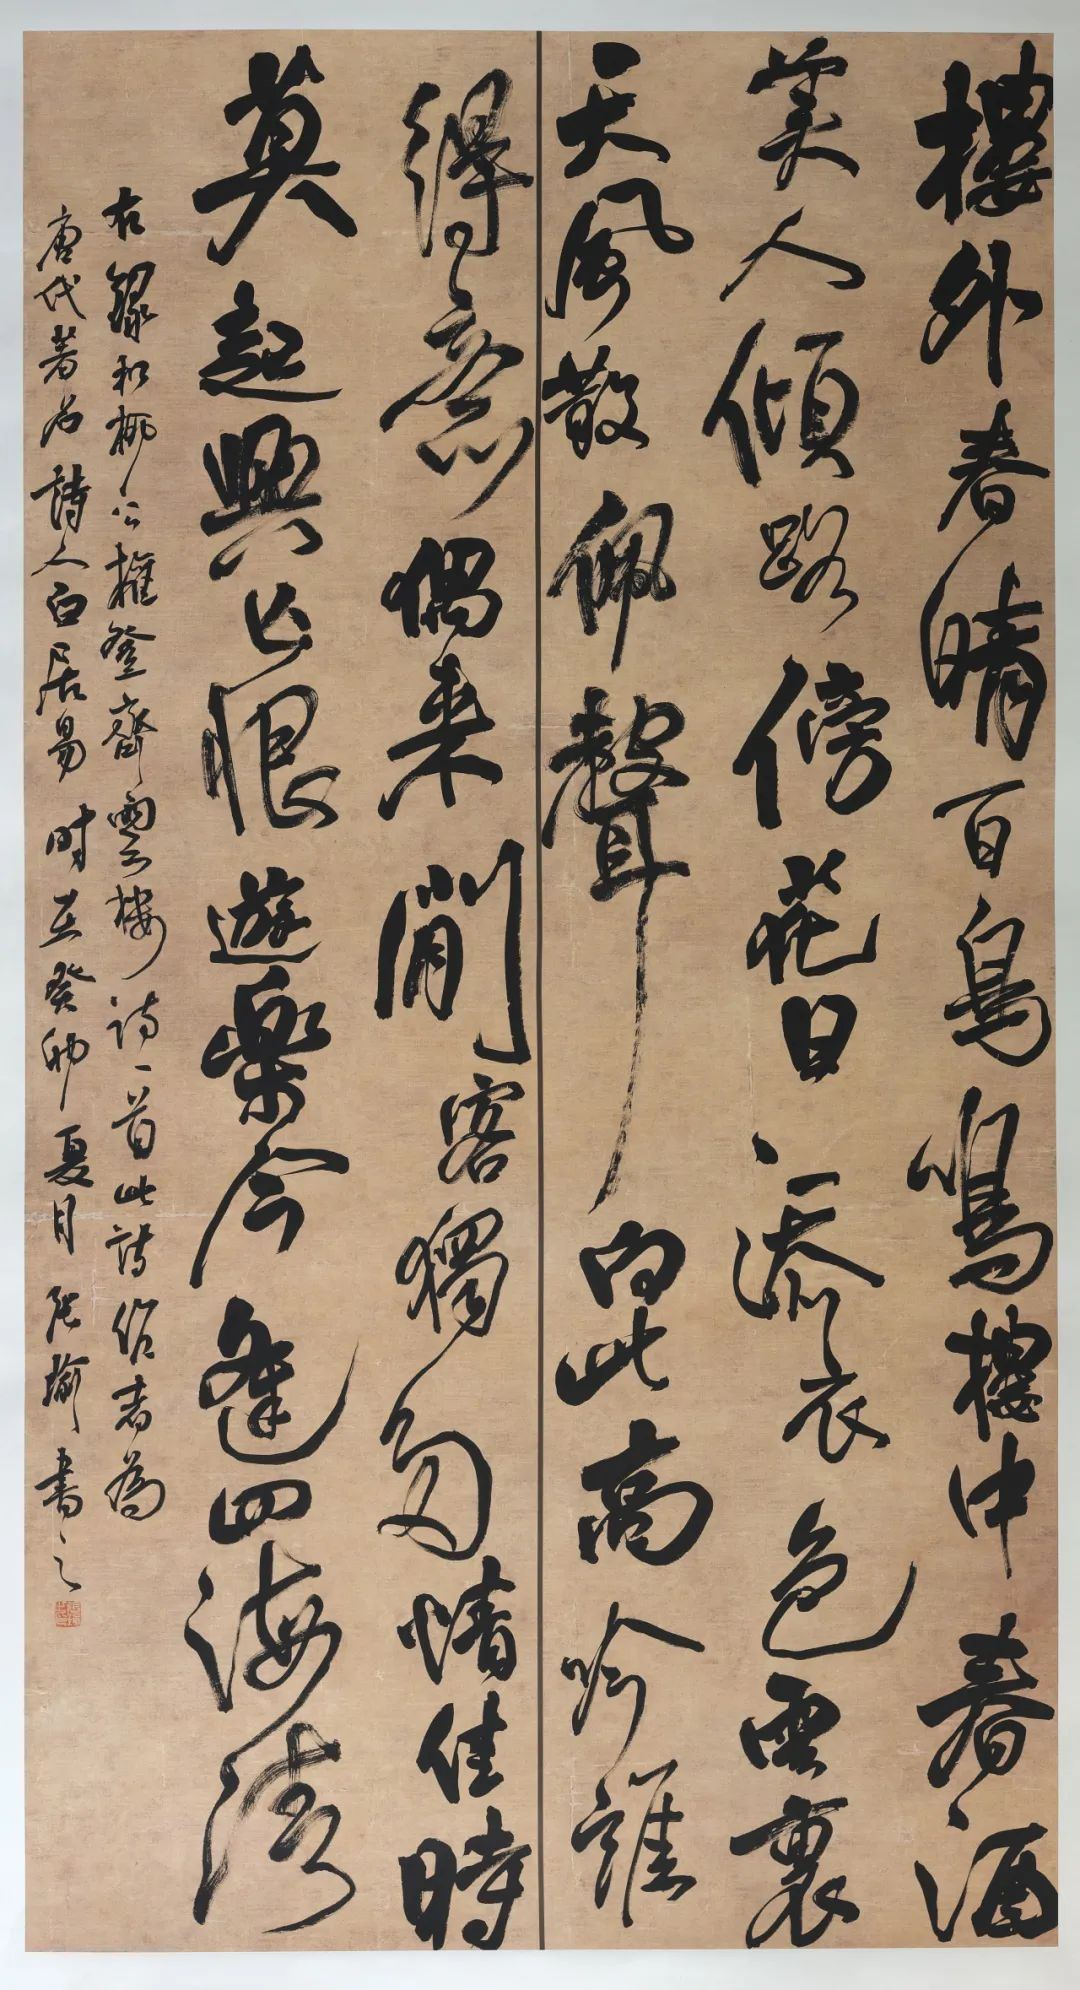 樓外春晴百鳥鳴樓中春酒
美人傾路傍花日添衣色雲裏
天風散佩聲向此高吟誰
得意偶來閒客獨多情佳時
莫起興亡恨遊樂今逢四海清
右録和柳公權登齊雲樓詩一首此詩作者為
唐代著名詩人白居易時在癸卯夏月張瑜書之